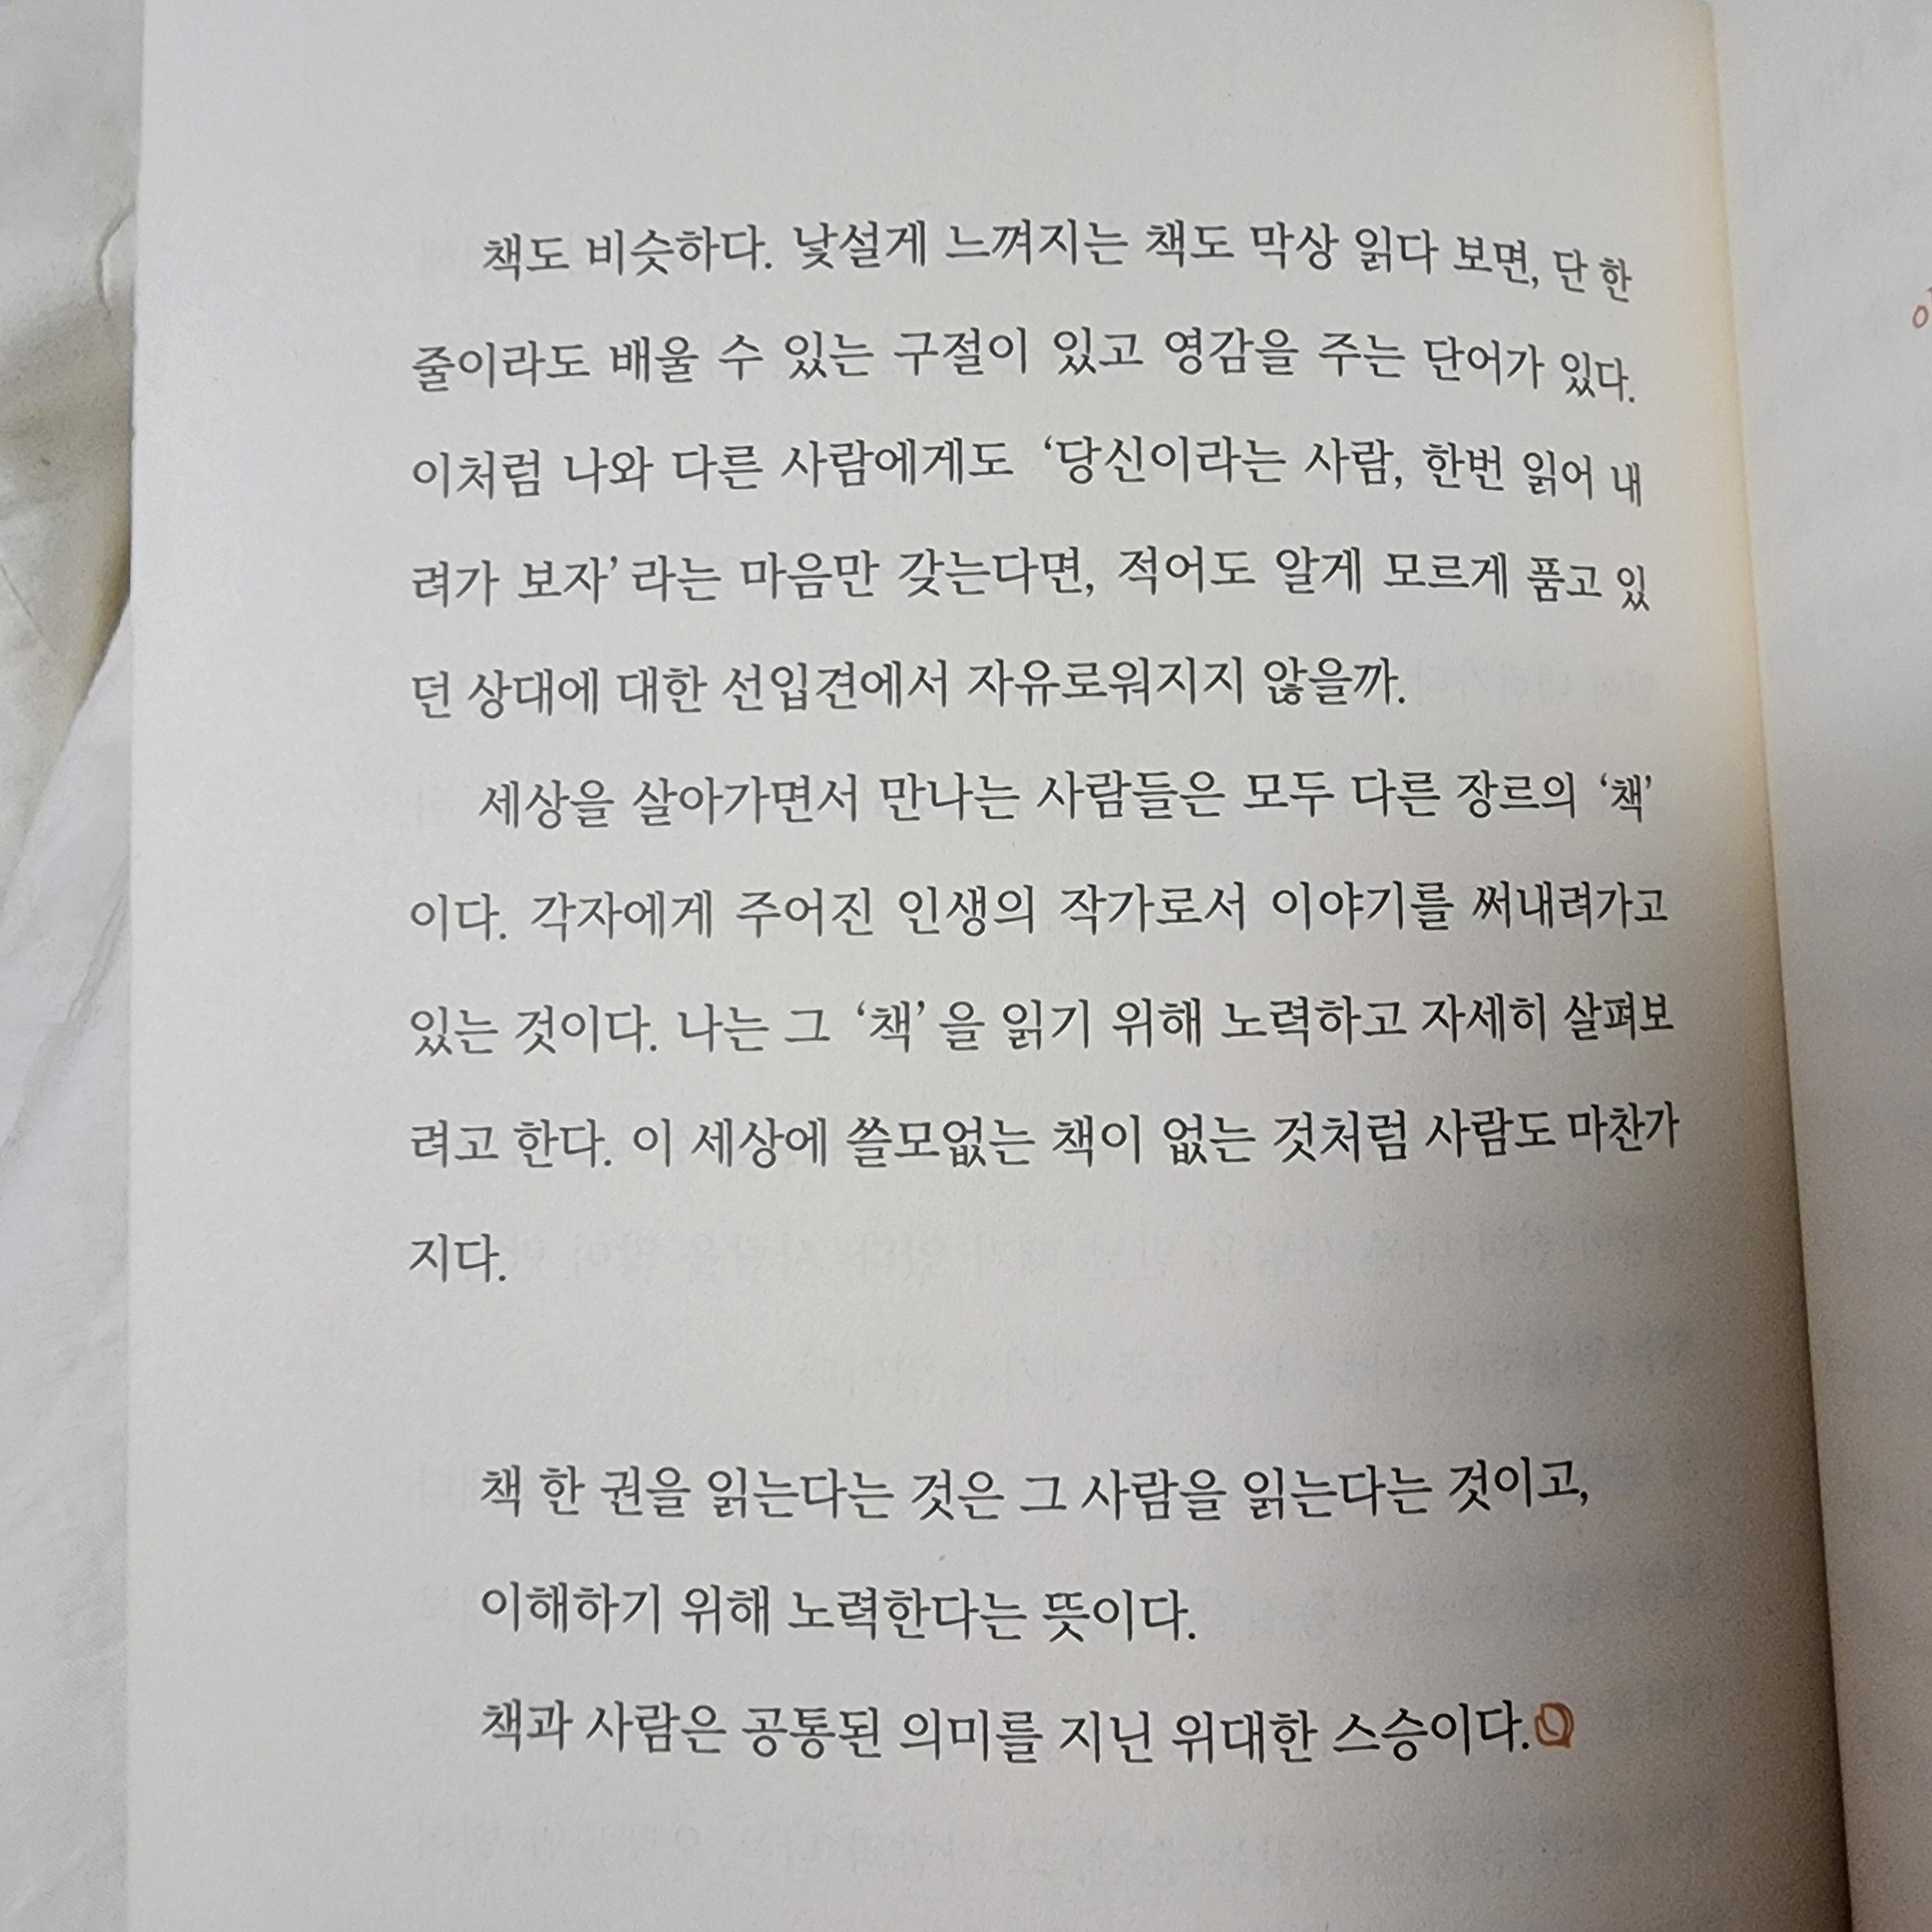 책도 비슷하다. 낯설게 느껴지는 책도 막상 읽다 보면, 단 한
줄이라도 배울 수 있는 구절이 있고 영감을 주는 단어가 있다.
이처럼 나와 다른 사람에게도 ‘당신이라는 사람, 한번 읽어 내
려가 보자’라는 마음만 갖는다면, 적어도 알게 모르게 품고 있
던 상대에 대한 선입견에서 자유로워지지 않을까.
세상을 살아가면서 만나는 사람들은 모두 다른 장르의 ‘책’
이다. 각자에게 주어진 인생의 작가로서 이야기를 써내려가고
있는 것이다. 나는 그 ‘책’을 읽기 위해 노력하고 자세히 살펴보
려고 한다. 이 세상에 쓸모없는 책이 없는 것처럼 사람도 마찬가
지다.
책 한 권을 읽는다는 것은 그 사람을 읽는다는 것이고,
이해하기 위해 노력한다는 뜻이다.
책과 사람은 공통된 의미를 지닌 위대한 스승이다.